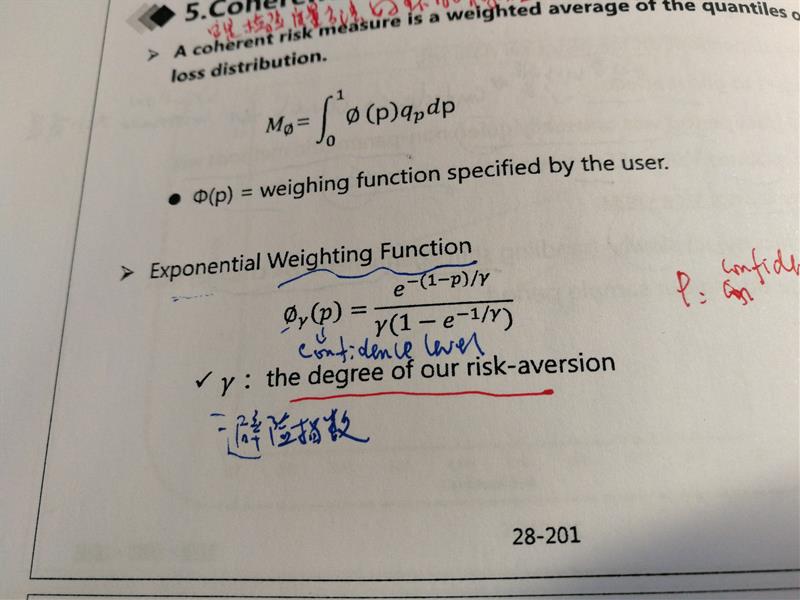 5.Coheren
➢ A coherent risk measure is a weighted average of the quantiles o
loss distribution.
M_ø = ∫₀¹ ø (p) q_p dp
● Φ(p) = weighing function specified by the user.
➢ Exponential Weighting Function
ø_γ(p) = e^{-(1-p)/γ} / γ(1 − e^{-1/γ})
confidence level
P: confiden
✓ γ : the degree of our risk-aversion
避险指数
28-201